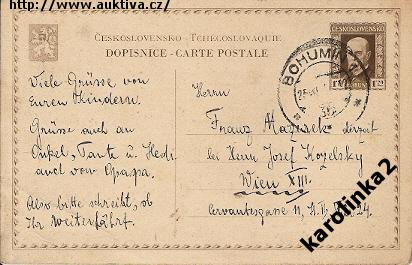 http://www.auktiva.cz/
ČESKOSLOVENSKO - TCHÉCOSLOVAQUIE
DOPISNICE - CARTE POSTALE
ČESKOSLOVENSKO
BOHUMÍN 1
Viele Grüsse von
Euren Kindern.
Grüsse auch an
Onkel, Tante u. Hedi
auch von Opapa.
Also bitte schreibt, ob
Ihr weiterfährt.
Herrn
Franz Mazurek derzeit
bei Herrn Josef Kozelsky
Wien XIII.
Cervantesgasse 11,
karolinka2